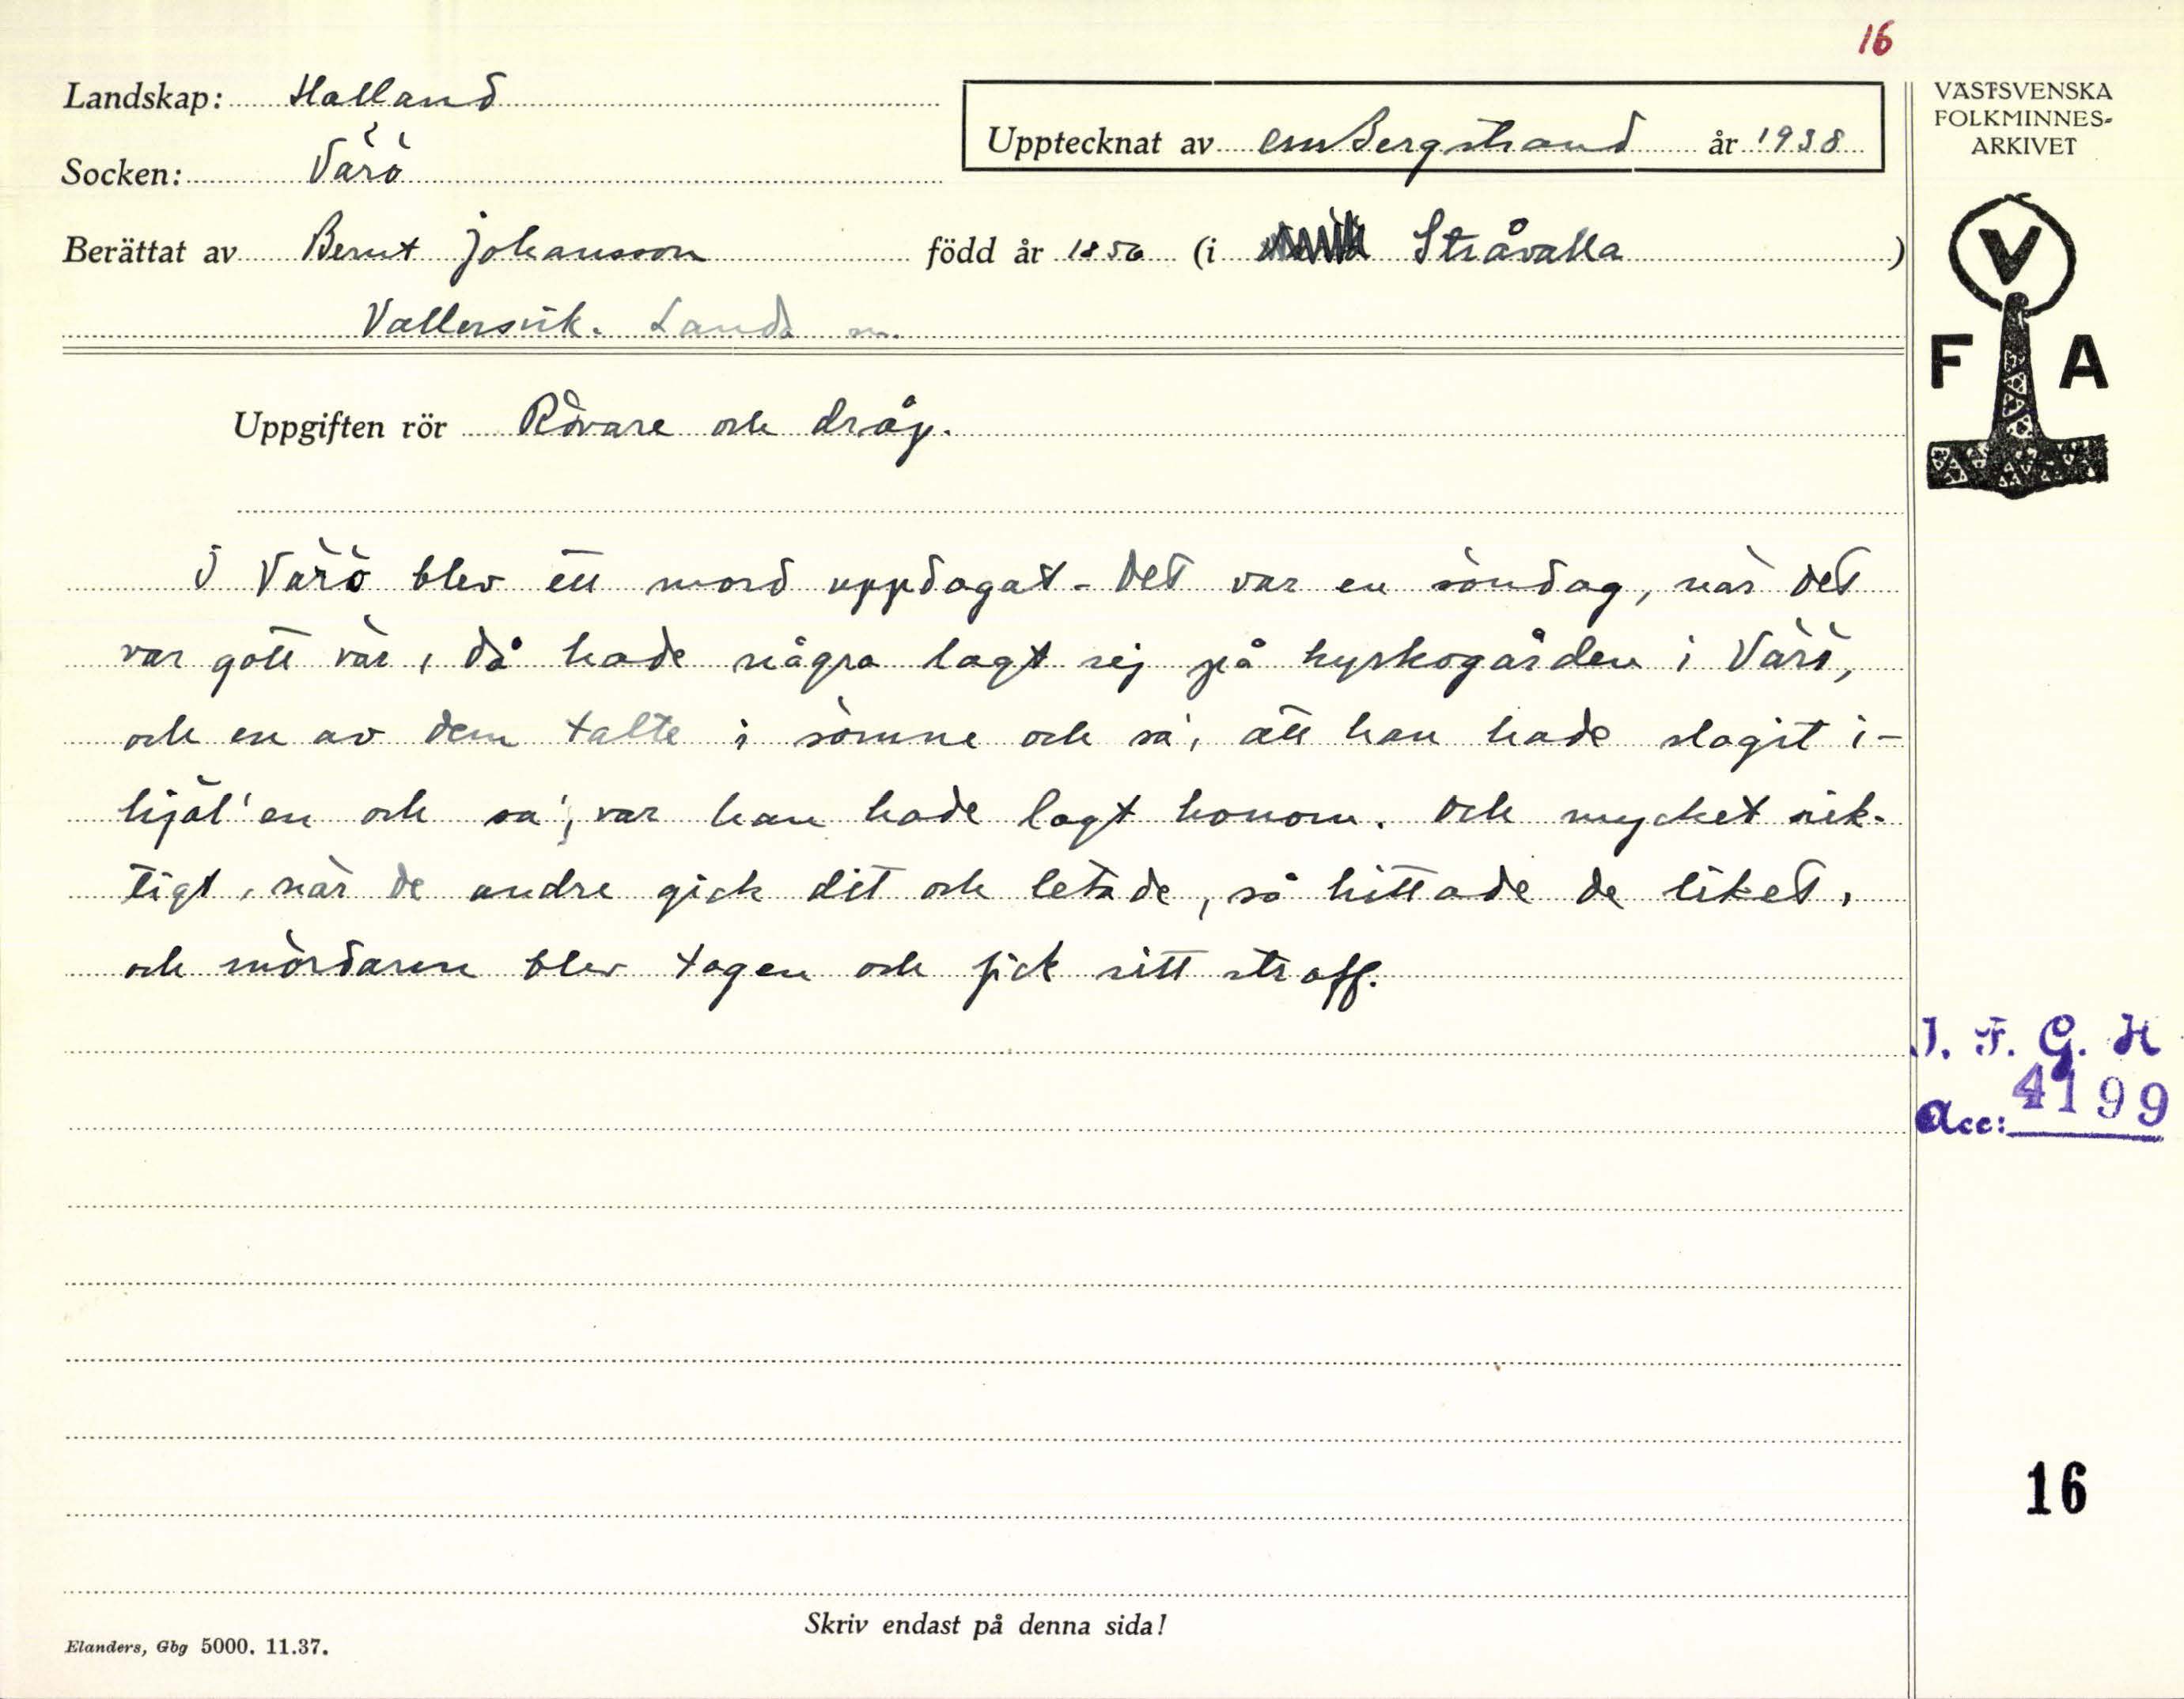 16
Landskap: Halland
Socken: Värö
Upptecknat av CMBergstrand år 1938
VÄSTSVENSKA
FOLKMINNES-
ARKIVET
Berättat av Bernt Johansson född år 1856 (i Stråvalla)
Vallersvik. Landa sn.
V
F A
Uppgiften rör Rövare och dråp.
I Värö blev ett mord uppdagat. Det var en söndag, när det
var gott vär, då hade några lagt sej på kyrkogården i Värö,
och en av dem talte i sömne och sa', att han hade slagit i-
hjäl' en och sa', var han hade lagt honom. Och mycket rik-
tigt, när de andre gick dit och letade, så hittade de liket,
och mördaren blev tagen och fick sitt straff.
I. F. G. H
Acc: 4199
16
Skriv endast på denna sida!
Elanders, Gbg 5000. 11.37.